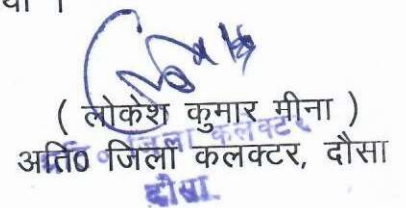 ( लोकेश कुमार मीना )
अति0 जिला कलक्टर, दौसा
जिला कलक्टर
दौसा